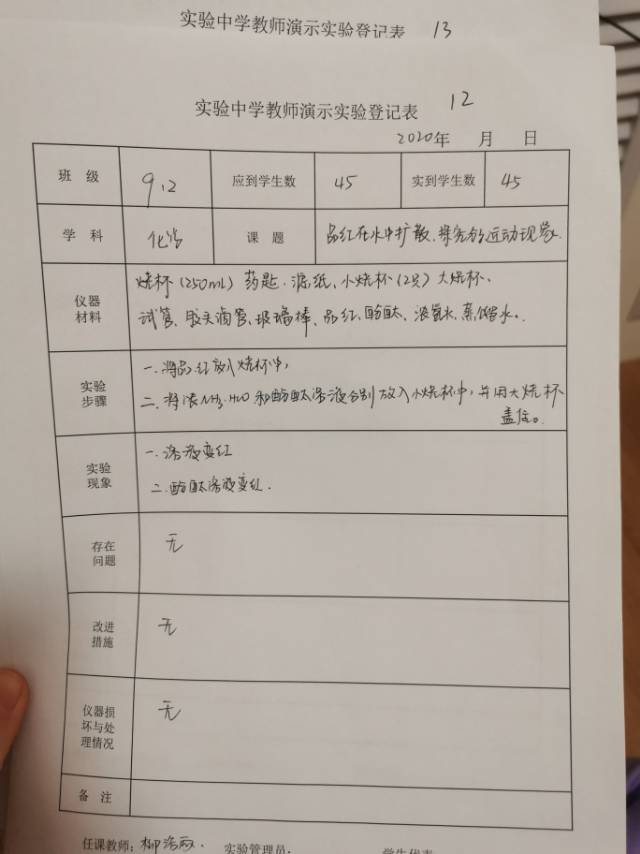 实验中学教师演示实验登记表 13
实验中学教师演示实验登记表 12
2020年 月 日
班 级 9.2 应到学生数 45 实到学生数 45
学 科 化学 课 题 品红在水中扩散、探究分子运动现象
仪器材料 烧杯(250mL) 药匙、滤纸、小烧杯(2只) 大烧杯、
试管、胶头滴管、玻璃棒、品红、酚酞、浓氨水、蒸馏水。
实验步骤 一、将品红放入烧杯中,
二、将浓NH₃·H₂O和酚酞溶液分别放入小烧杯中,并用大烧杯
盖住。
实验现象 一、溶液变红
二、酚酞溶液变红.
存在问题 无
改进措施 无
仪器损坏与处理情况 无
备 注
任课教师: 柳 实验管理员: 学生代表